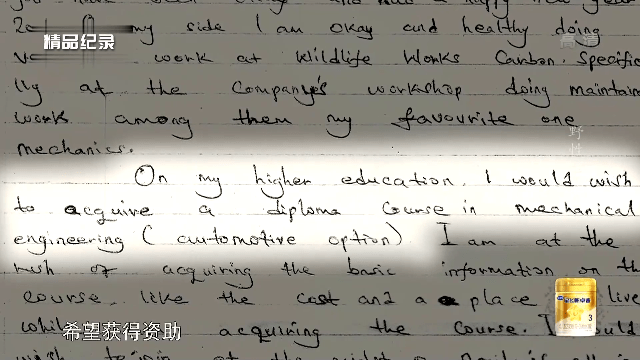 you have been and had a happy new year
my side I am okay and healthy doing
精品纪录
高清
work at Wildlife Works Carbon. Specific
lly at the Company's workshop doing maintain
work among them my favourite one
野
mechanics.
On my higher education, I would wish
to acquire a diploma course in mechanical
engineering (automotive option) I am at the
rush of acquiring the basic information on the
course, like the cost and a place live
3
while acquiring the course. I would
希望获得资助
wish to join at the